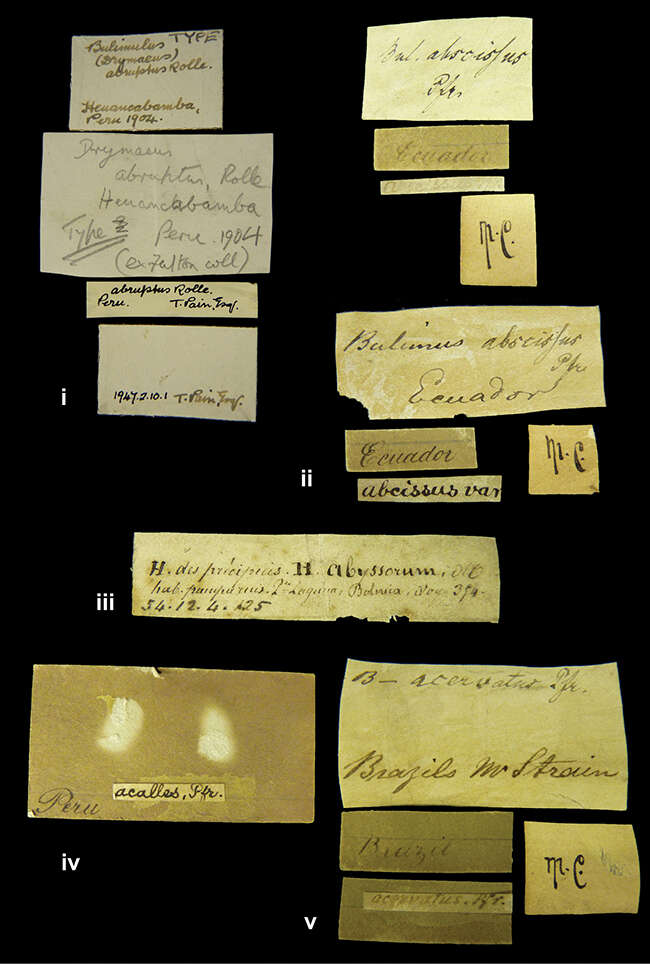 Bulimulus TYPE
(Drymaeus)
abruptus Rolle.
Huancabamba,
Peru 1904.
Drymaeus
abruptus, Rolle
Huancabamba
Type Peru. 1904
(ex Fulton coll)
abruptus Rolle.
Peru. T. Pain, Esq.
1947.2.10.1 T. Pain, Esq.
i
Bul. abscissus
Pfr.
Ecuador
M.C.
Bulimus abscissus
Pfr
Ecuador
Ecuador
abcissus var
M.C.
ii
H. des précipices. H. Abyssorum, d'O
hab. Laguna, Bolivia,
54.12.4.125
iii
acalles, Pfr.
Peru
iv
B— acervatus Pfr.
Brazils Mr Strain
Brazil
acervatus. Pfr.
M.C.
v